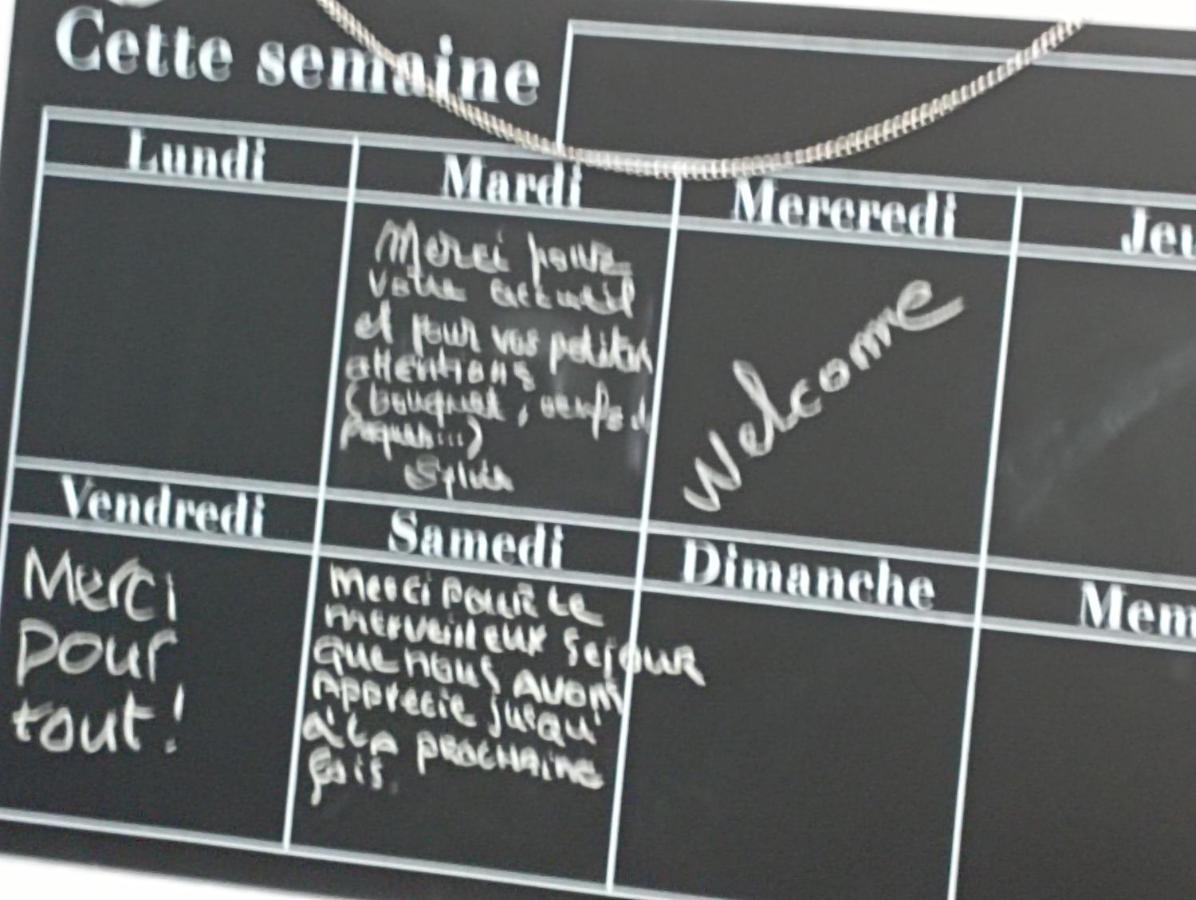 Cette semaine
Lundi
Mardi
Mercredi
Jeu
Merci pour
votre accueil
et pour vos petites
attentions
(bouquet, oeufs de
Paques...)
Welcome
Vendredi
Samedi
Dimanche
Mem
Merci
pour
tout!
merci pour Le
merveilleux sejour
que nous avons
apprecie jusqu'
à La prochaine
fois.